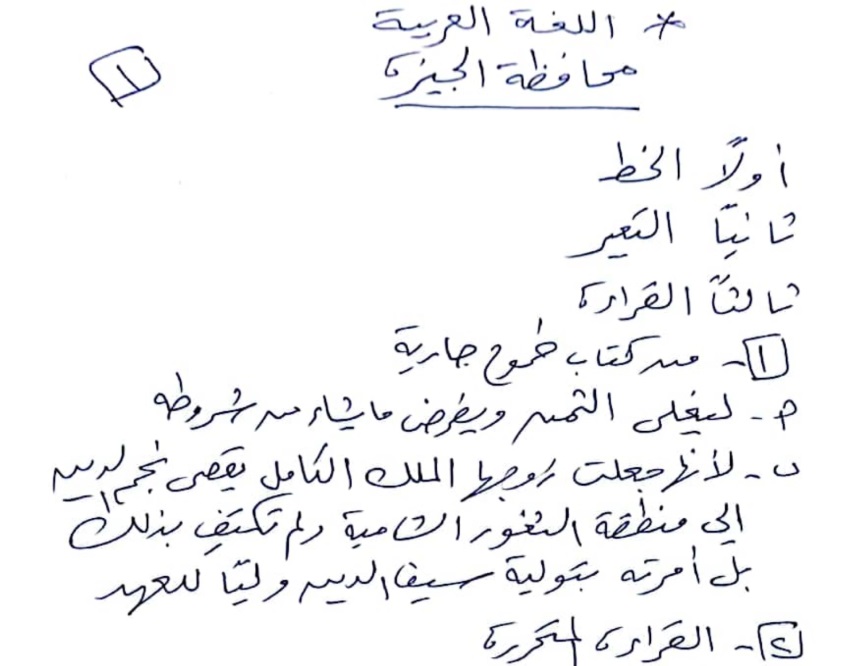 * اللغة العربية
محافظة الجيزة
١
أولًا الخط
ثانيًا التعبير
ثالثًا القراءة
١- من كتاب طموح جارية
م- ليغلى الثمن ويفرض ما يشاء من شروطه
ب- لأنها جعلت زوجها الملك الكامل يقصى نجم الدين
إلى منطقة الثغور الشامية ولم تكتفِ بذلك
بل أمرته بتولية سيف الدين وليًا للعهد
٢- القراءة المتحررة